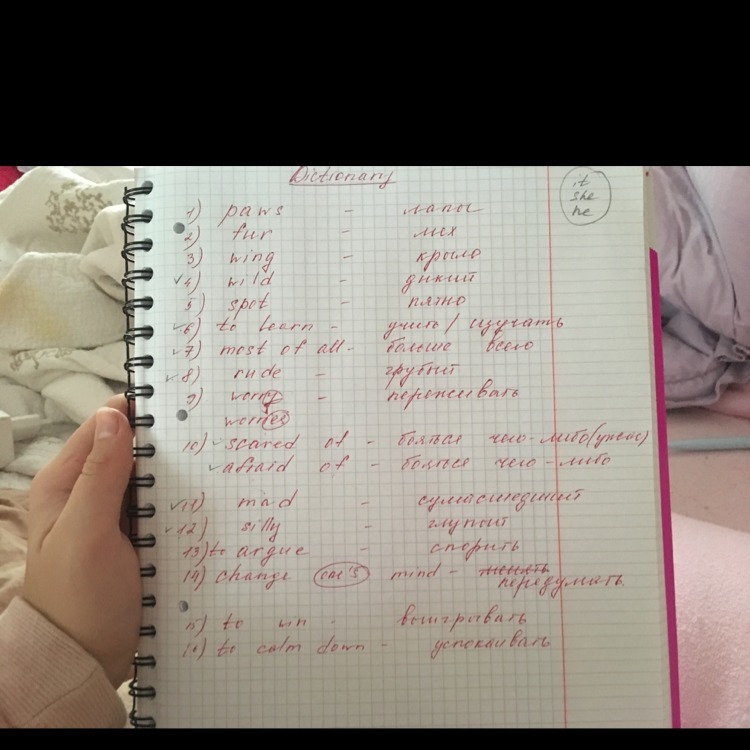 Dictionary
it
she
he
1) paws - лапы
2) fur - мех
3) wing - крыло
✓4) wild - дикий
5) spot - пятно
✓6) to learn - учить / изучать
✓7) most of all - больше всего
✓8) rude - грубый
9) worry - переживать
worries
10) ✓scared of - бояться чего-либо (ужас)
✓afraid of - бояться чего-либо
✓11) mad - сумасшедший
✓12) silly - глупый
13) to argue - спорить
14) change one's mind - менять
передумать
15) to win - выигрывать
16) to calm down - успокаивать